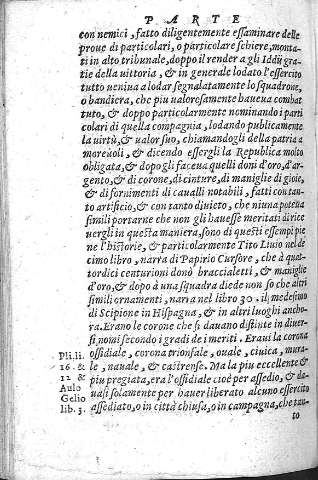 PARTE
con nemici, fatto diligentemente essaminare delle
proue di particolari, o particolare schiere, monta-
ti in alto tribunale, doppo il render a gli Iddij gra-
tie della uittoria, & in generale lodato l'essercito
tutto ueniua a lodar segnalatamente lo squadrone,
o bandiera, che piu ualorosamente haueua combat
tuto, & doppo particolarmente nominando i parti
colari di quella compagnia, lodando publicamente
la uirtù, & ualor suo, chiamandogli della patria a
moreuoli, & dicendo essergli la Republica molto
obligata, & dopo gli faceua quelli doni d'oro, d'ar-
gento, & di corone, di cinture, di maniglie di gioie,
& di fornimenti di caualli notabili, fatti con tan-
to artificio, & con tanto diuieto, che niuna poteua
simili portarne che non gli hauesse meritati d'rice
uergli in questa maniera, sono di questi essempi pie
ne l'historie, & particolarmente Tito Liuio nel de
cimo libro, narra di Papirio Cursore, che à quat-
tordici centurioni donò braccialetti, & maniglie
d'oro, & dopò à una squadra diede non so che altri
simili ornamenti, narra nel libro 30. il medesimo
di Scipione in Hispagna, & in altri luoghi ancho-
ra. Erano le corone che si dauano distinte in diuer-
si, nomi secondo i gradi de i meriti. Eraui la corona
Pli.li. ossidiale, corona trionfale, ouale, ciuica, mura-
16. & le, nauale, & castrense. Ma la piu eccellente &
12 & piu pregiata, era l'ossidiale cioè per assedio, & da-
Aulo uasi solamente per hauer liberato alcuno essercito
Gelio
lib. 5. assediato, o in città chiusa, o in campagna, che tan-
to